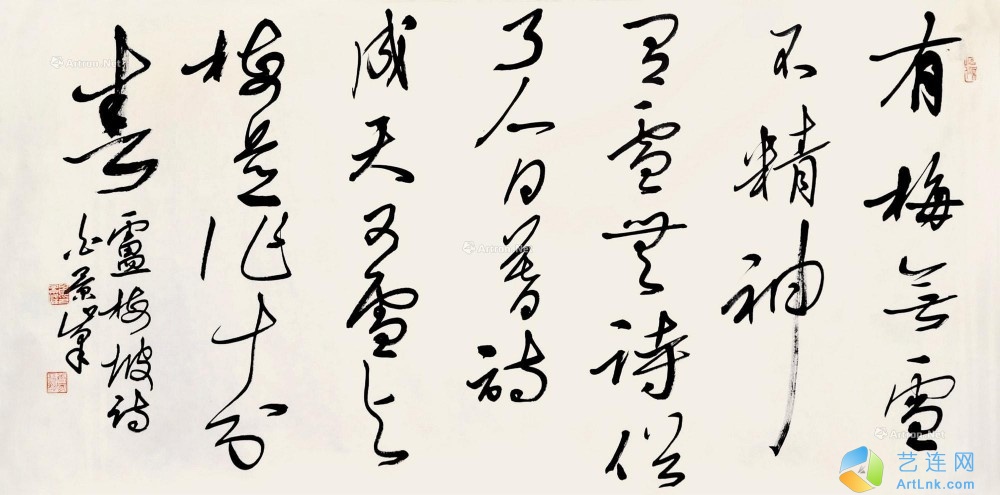 有梅無雪
不精神
有雪無詩俗
了人日暮詩
成天又雪与
梅並作十分
春
盧梅坡詩
Artron.Net
Artron.Net
Artron.Net
艺连网
ArtLnk.com